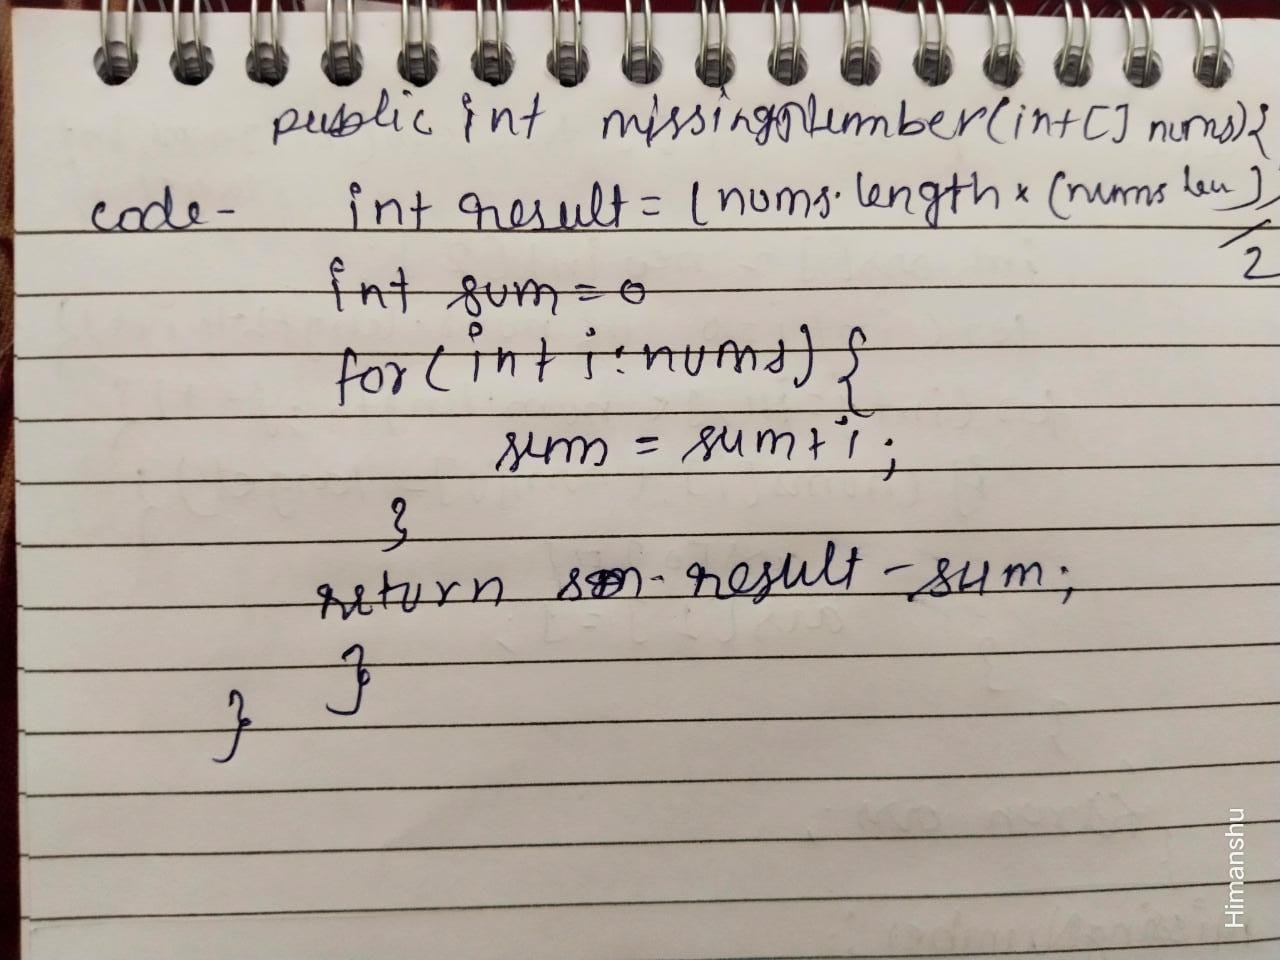 public int missingNumber(int[] nums){
code- int result = (nums.length x (nums len))
/2
int sum = 0
for(int i : nums) {
sum = sum + i ;
}
return result - sum ;
}
}
Himanshu